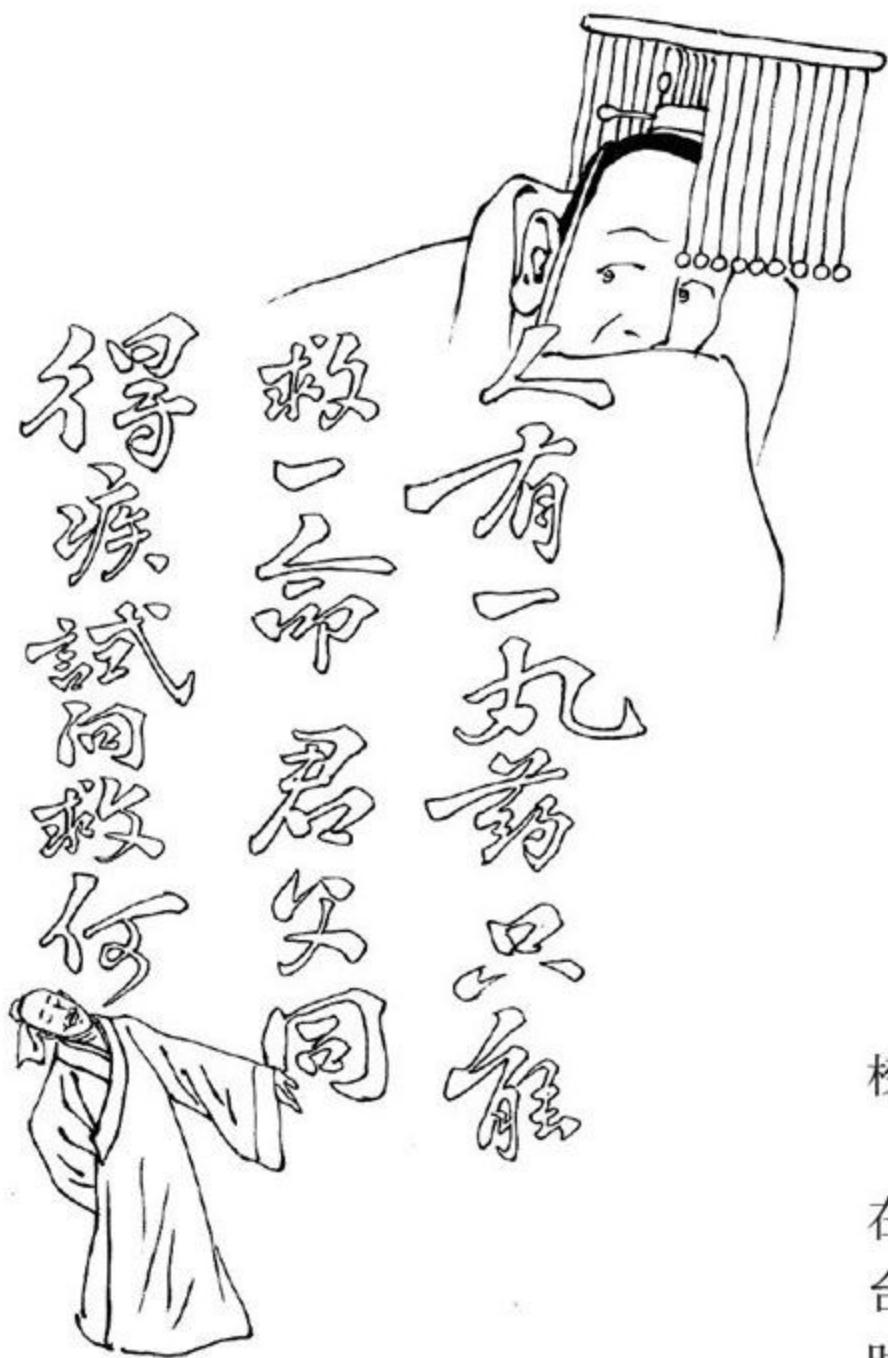 人有一丸药只能
救一命 君父同
得疾試问救何